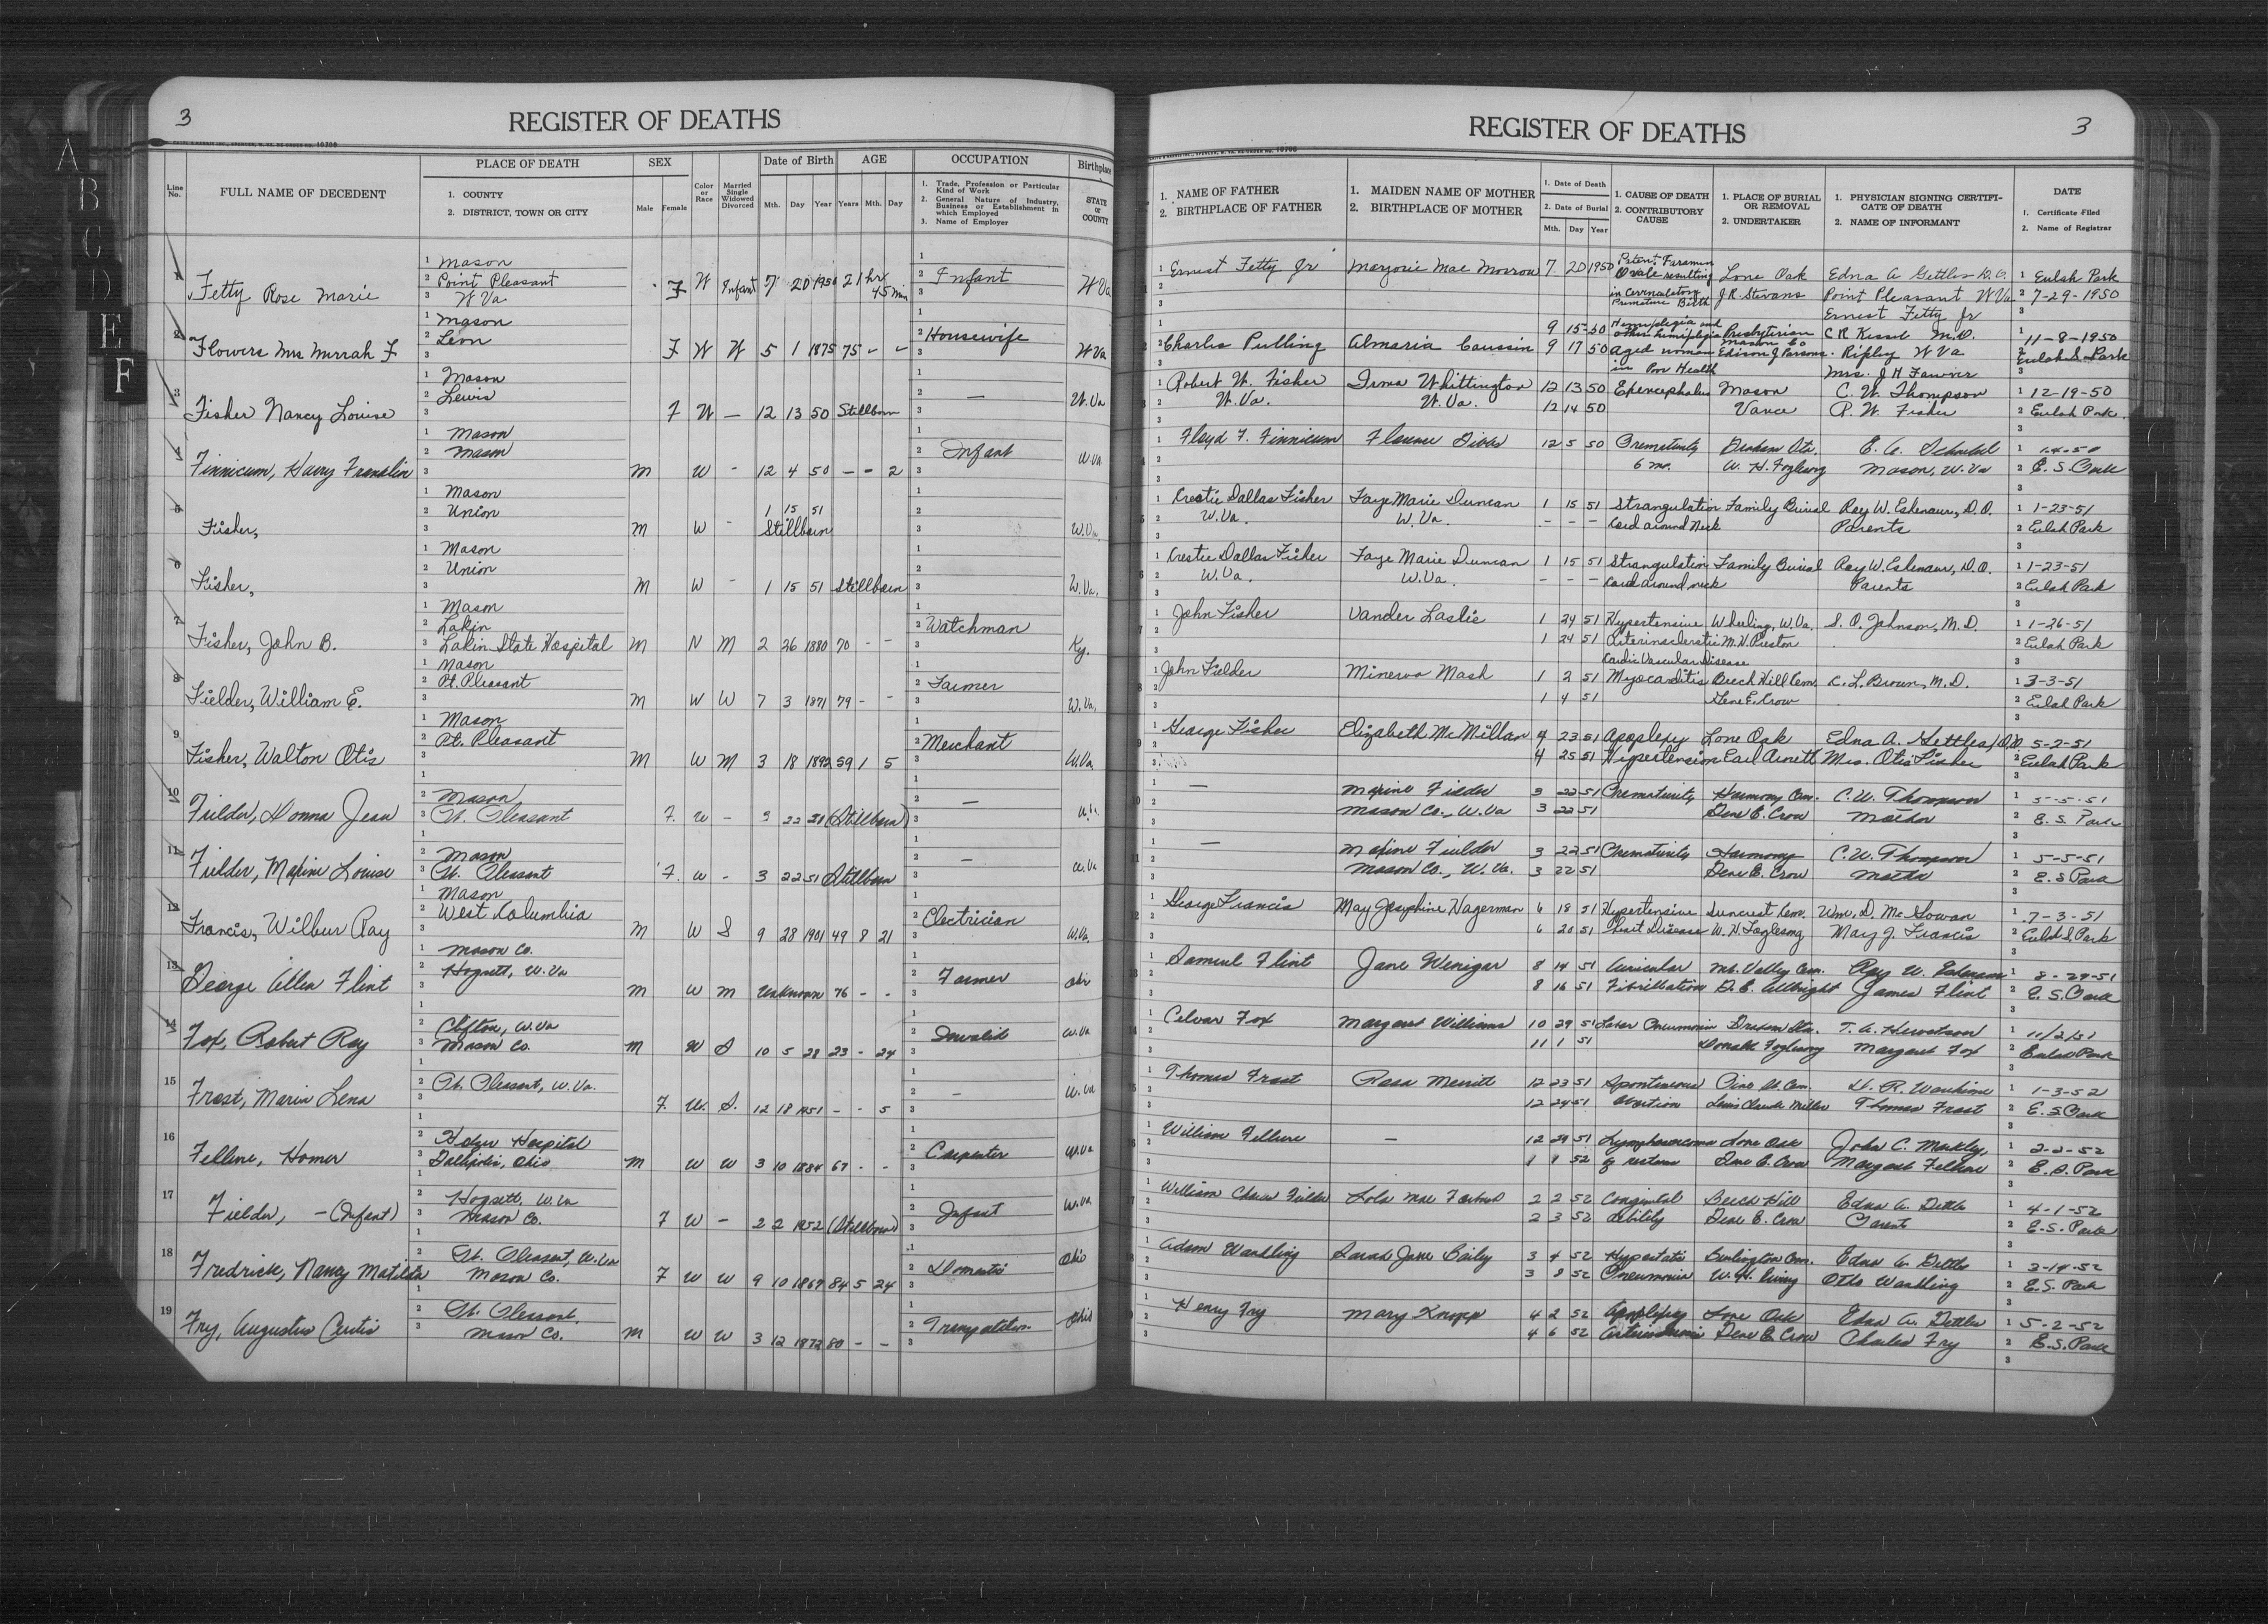 3
REGISTER OF DEATHS
Line No.
FULL NAME OF DECEDENT
PLACE OF DEATH
1. COUNTY
2. DISTRICT, TOWN OR CITY
SEX
Male Female
Color or Race
Married Single Widowed Divorced
Date of Birth
Mth. Day Year
AGE
Years Mth. Day
OCCUPATION
1. Trade, Profession or Particular Kind of Work
2. General Nature of Industry, Business or Establishment in which Employed
3. Name of Employer
Birthplace
STATE or COUNTY
1 Mason
Fetty Rose Marie 2 Point Pleasant F W Infant 7 20 1950 21 hr 45 min Infant W Va
3 W Va
2 Mason
Flowers Mrs Murrah F Leon F W W 5 1 1875 75 - - Housewife W Va
3 Mason
Fisher Nancy Louise Lewis F W — 12 13 50 Stillborn — W. Va
4 Mason
Finnicum, Harry Franklin Mason M W - 12 4 50 - - 2 Infant W Va
5 Mason
Fisher, Union M W - 1 15 51 Stillborn W. Va.
6 Mason
Fisher, Union M W - 1 15 51 Stillborn W. Va.
7 Mason
Lakin
Fisher, John B. Lakin State Hospital M N M 2 26 1880 70 - - Watchman Ky.
8 Mason
Fielder, William E. Pt. Pleasant M W W 7 3 1871 79 - - Farmer W. Va.
9 Mason
Fisher, Walton Otis Pt. Pleasant M W M 3 18 1892 59 1 5 Merchant W. Va
10 Mason
Fielder, Donna Jean Pt. Pleasant F. W - 3 22 (Stillborn) —
11 Mason
Fielder, Maxine Louise Pt. Pleasant F. W - 3 22 51 Stillborn — W. Va
12 Mason
Francis, Wilbur Ray West Columbia M W S 9 28 1901 49 8 21 Electrician W. Va.
13 Mason Co.
George Allen Flint Hogsett, W. Va M W M Unknown 76 - - Farmer
14 Clifton, W. Va
Fox, Robert Ray Mason Co. M W S 10 5 28 23 - 24 Invalid W. Va
15 Pt. Pleasant, W. Va.
Frost, Maria Lena F. W. S. 12 18 1951 - - 5 — W. Va
16 Holzer Hospital
Homer Gallipolis, Ohio M W W 3 10 1884 67 - - Carpenter W. Va
17 Hogsett, W. Va
Fielder, - (Infant) Mason Co. F W - 2 2 1952 (Stillborn) Infant W. Va
18 Pt. Pleasant, W. Va
Fredrick, Nancy Matilda Mason Co. F W W 9 10 1869 84 5 24 Domestic Ohio
19 Pt. Pleasant,
Fry, Augustus Curtis Mason Co. M W W 3 12 1872 80 - - Ohio
REGISTER OF DEATHS
3
1. NAME OF FATHER
2. BIRTHPLACE OF FATHER
1. MAIDEN NAME OF MOTHER
2. BIRTHPLACE OF MOTHER
1. Date of Death
2. Date of Burial
Mth. Day Year
1. CAUSE OF DEATH
2. CONTRIBUTORY CAUSE
1. PLACE OF BURIAL OR REMOVAL
2. UNDERTAKER
1. PHYSICIAN SIGNING CERTIFICATE OF DEATH
2. NAME OF INFORMANT
DATE
1. Certificate Filed
2. Name of Registrar
Ernest Fetty Jr Marjorie Mae Morrow 7 20 1950 Patent Foramen Ovale resulting Lone Oak Edna A Gettles D.O. Eulah Park
in Premature Birth J R Stevans Point Pleasant W Va 7-29-1950
Ernest Fetty Jr
9 15-50 Hemiplegia and Presbyterian C R Kessel M.D. 11-8-1950
Charles Pulling Almaria Caussin 9 17 50 aged woman in Poor Health Mason Co Edison J Parsons. Ripley W Va Eulah S. Park
Mrs. J H Fawver
Robert W. Fisher Irma Whittington 12 13 50 Epencephalus Mason C. W. Thompson 12-19-50
W. Va. W. Va. 12 14 50 Vance R. W. Fisher Eulah Park.
Floyd F. Finnicum 12 5 50 Prematurity Graham Sta. 1-4-50
6 mo. W. H. Foglesong Mason, W. Va E. S. Park
Crestie Dallas Fisher Faye Marie Duncan 1 15 51 Strangulation Family Burial Roy W. Eshenaur, D.O. 1-23-51
W. Va. W. Va. - - - Cord around Neck Parents Eulah Park
Crestie Dallas Fisher Faye Marie Duncan 1 15 51 Strangulation Family Burial Roy W. Eshenaur, D.O. 1-23-51
W. Va. W. Va. - - - Cord around neck Parents Eulah Park
John Fisher Vander Laslie 1 24 51 Hypertensive Wheeling, W. Va. S. O. Johnson, M.D. 1-26-51
1 24 51 M. H. Preston Eulah Park
Cardio Vascular Disease
John Fielder Minerva Mash 1 2 51 Myocarditis Beech Hill Cem. C. L. Brown, M.D. 3-3-51
1 4 51 Gene E. Crow Eulah Park
George Fisher Elizabeth McMillan 4 23 51 Apoplexy Lone Oak Edna A. Gettles, D.O. 5-2-51
4 25 51 Hypertension Earl Arnett Mrs. Otis Fisher Eulah Park
— Maxine Fielder 3 22 51 Prematurity Harmony Cem. C. W. Thompson 5-5-51
Mason Co., W. Va 3 22 51 Gene E. Crow Mother E. S. Park
— Maxine Fielder 3 22 51 Prematurity Harmony C. W. Thompson 5-5-51
Mason Co., W. Va. 3 22 51 Gene E. Crow Mother E. S Park
George Francis May Josephine Hagerman 6 18 51 Hypertensive Suncrest Cem. Wm. D. McGowan 7-3-51
6 20 51 Heart Disease W. H. Foglesong Mary J. Francis Eulah S. Park
Samuel Flint Jane Wenigar 8 14 51 Auricular Mt. Valley Cem. Roy W. Eshenaur 8-29-51
8 16 51 Fibrillation G. E. Allbright James Flint E. S. Park
Celvar Fox Margaret Williams 10 29 51 Lobar Pneumonia Graham Sta. 11/2/51
11 1 51 Donald Foglesong Margaret Fox Eulah Park
Thomas Frost Rosa Merritt 12 23 51 Spontaneous Pine St. Cem. 1-3-52
12 24 51 Abortion Lewis Claude Miller Thomas Frost E. S. Park
William Fellure — 12 29 51 Lymphosarcoma Lone Oak John C. Markley, 2-2-52
1 1 52 Gene E. Crow Margaret Fellure E. S. Park
William Fielder Lola Mae 2 2 52 Congenital Beech Hill Edna A. Gettles 4-1-52
2 3 52 debility Gene E. Crow Parent E. S. Park
Adam Warkling Sarah Jane Baily 3 4 52 Hypostatic Burlington Cem. Edna A. Gettles 3-14-52
3 8 52 Pneumonia Otho Warkling E. S. Park
Henry Fry Mary Knopp 4 2 52 Apoplexy Lone Oak Edna A. Gettles 5-2-52
4 6 52 Gene E Crow Charles Fry E. S. Park
A
B
C
D
E
F